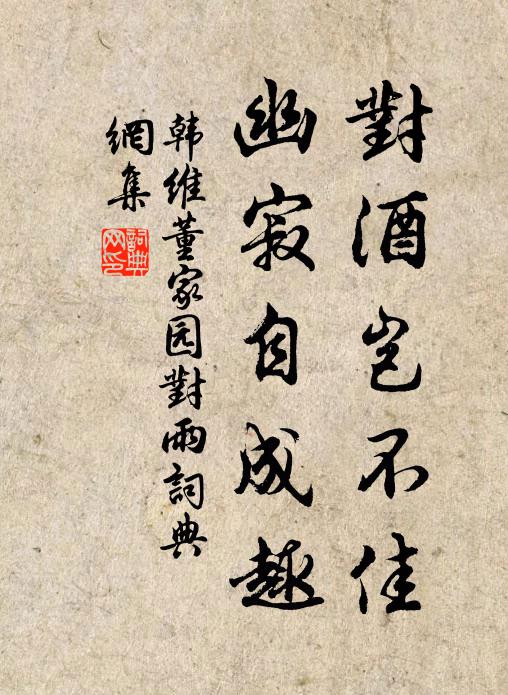 對酒豈不佳
幽寂自成趣
韩維董家园對雨詞典
網集
詞典
网印